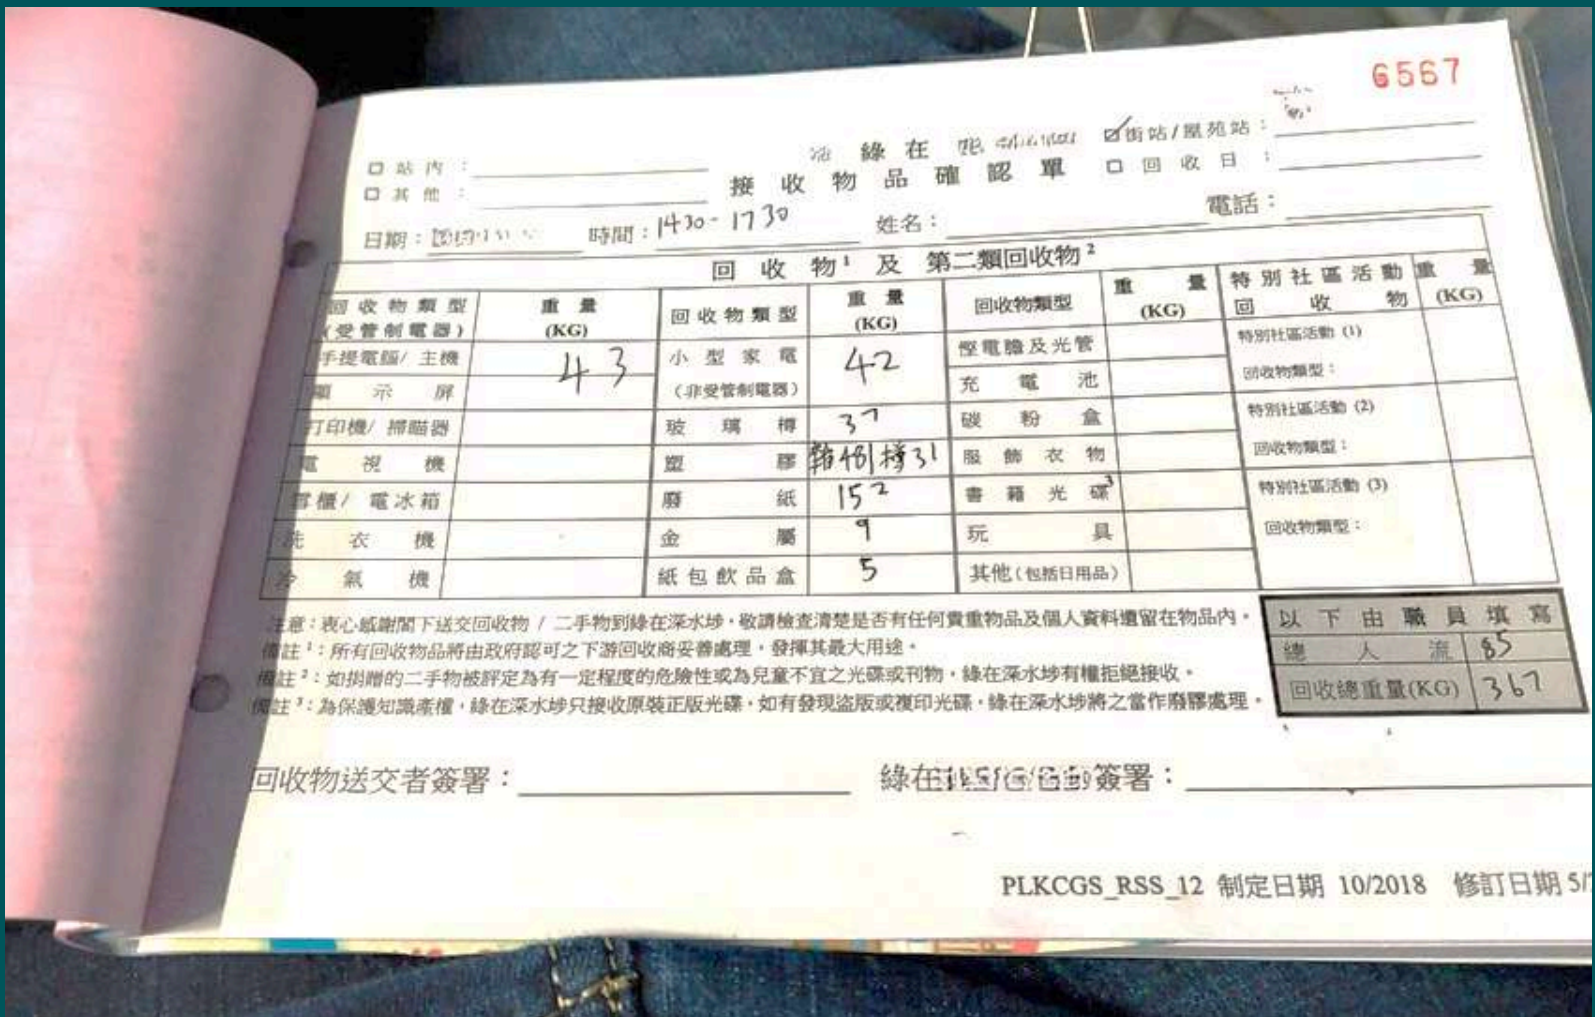 6567
綠在
☑街站/屋苑站：
□站內：
□其他：
接收物品確認單
□回收日：
日期： 時間：1430-1730 姓名： 電話：
回收物¹及第二類回收物²
回收物類型(受管制電器) 重量(KG) 回收物類型 重量(KG) 回收物類型 重量(KG) 特別社區活動回收物 重量(KG)
手提電腦/主機 43 小型家電(非受管制電器) 42 慳電膽及光管 特別社區活動 (1)
顯示屏 充電池 回收物類型：
打印機/掃瞄器 玻璃樽 37 碳粉盒 特別社區活動 (2)
電視機 塑膠 48 31 服飾衣物 回收物類型：
雪櫃/電冰箱 廢紙 152 書籍光碟³ 特別社區活動 (3)
洗衣機 金屬 9 玩具 回收物類型：
冷氣機 紙包飲品盒 5 其他(包括日用品)
注意：衷心感謝閣下送交回收物 / 二手物到綠在深水埗，敬請檢查清楚是否有任何貴重物品及個人資料遺留在物品內。
備註¹：所有回收物品將由政府認可之下游回收商妥善處理，發揮其最大用途。
備註²：如捐贈的二手物被評定為有一定程度的危險性或為兒童不宜之光碟或刊物，綠在深水埗有權拒絕接收。
備註³：為保護知識產權，綠在深水埗只接收原裝正版光碟，如有發現盜版或複印光碟，綠在深水埗將之當作廢膠處理。
以下由職員填寫
總人流 85
回收總重量(KG) 367
回收物送交者簽署：
綠在 簽署：
PLKCGS_RSS_12 制定日期 10/2018 修訂日期 5/